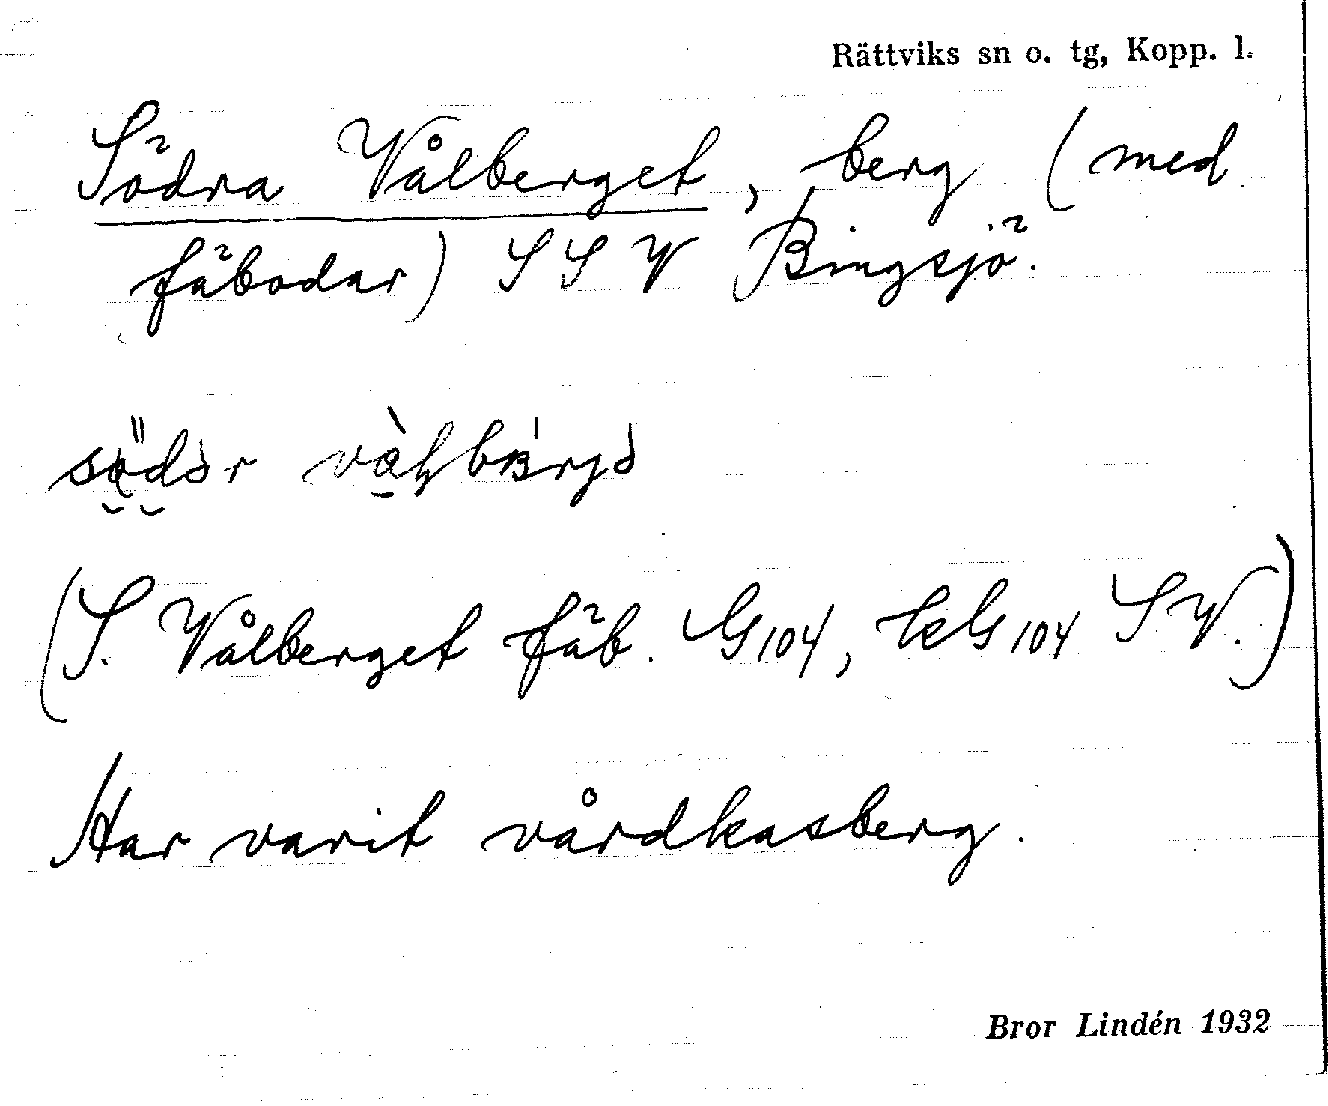 Rättviks sn o. tg, Kopp. l.
Södra Vålberget, berg (med
fäbodar) SSV Bingsjö.
(S. Vålberget fäb. G104, kG104 SV.)
Har varit vårdkasberg.
Bror Lindén 1932